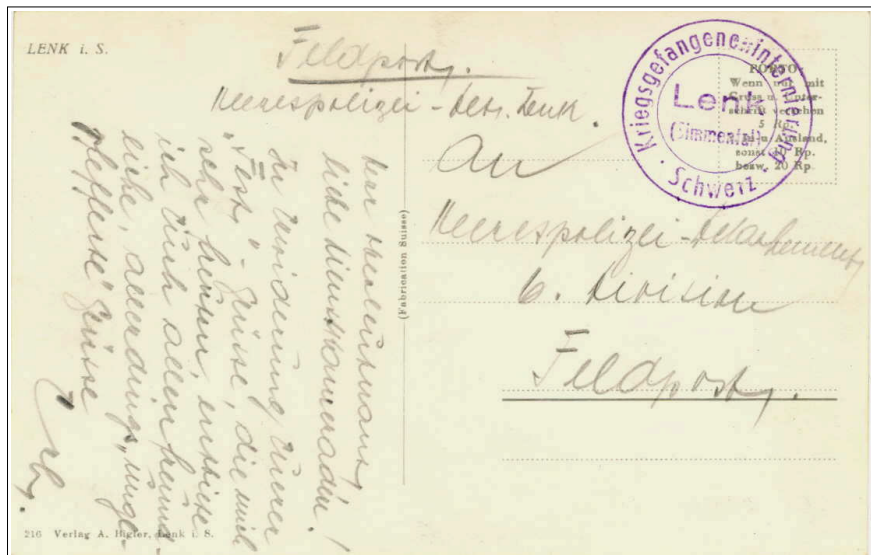 LENK i. S.
Feldpost.
Heerespolizei-Det. Lenk.
Kriegsgefangeneninternierung
Lenk
(Simmental)
Schweiz
PORTO:
Wenn nur mit
Gruss u. Unter-
schrift versehen
5 Rp.
In- u. Ausland,
sonst 10 Rp.
bezw. 20 Rp.
An
Heerespolizei-Detachement
6. Division
Feldpost.
(Fabrication Suisse)
Herr Oberleutnant,
liebe Dienstkameraden!
In Erwiderung Eurer
"Fest"-Grüsse, die mich
sehr freuten, entbiete
ich Euch allen herz-
liche, allerdings "unge-
Grüsse
216 Verlag A. Bigler, Lenk i. S.